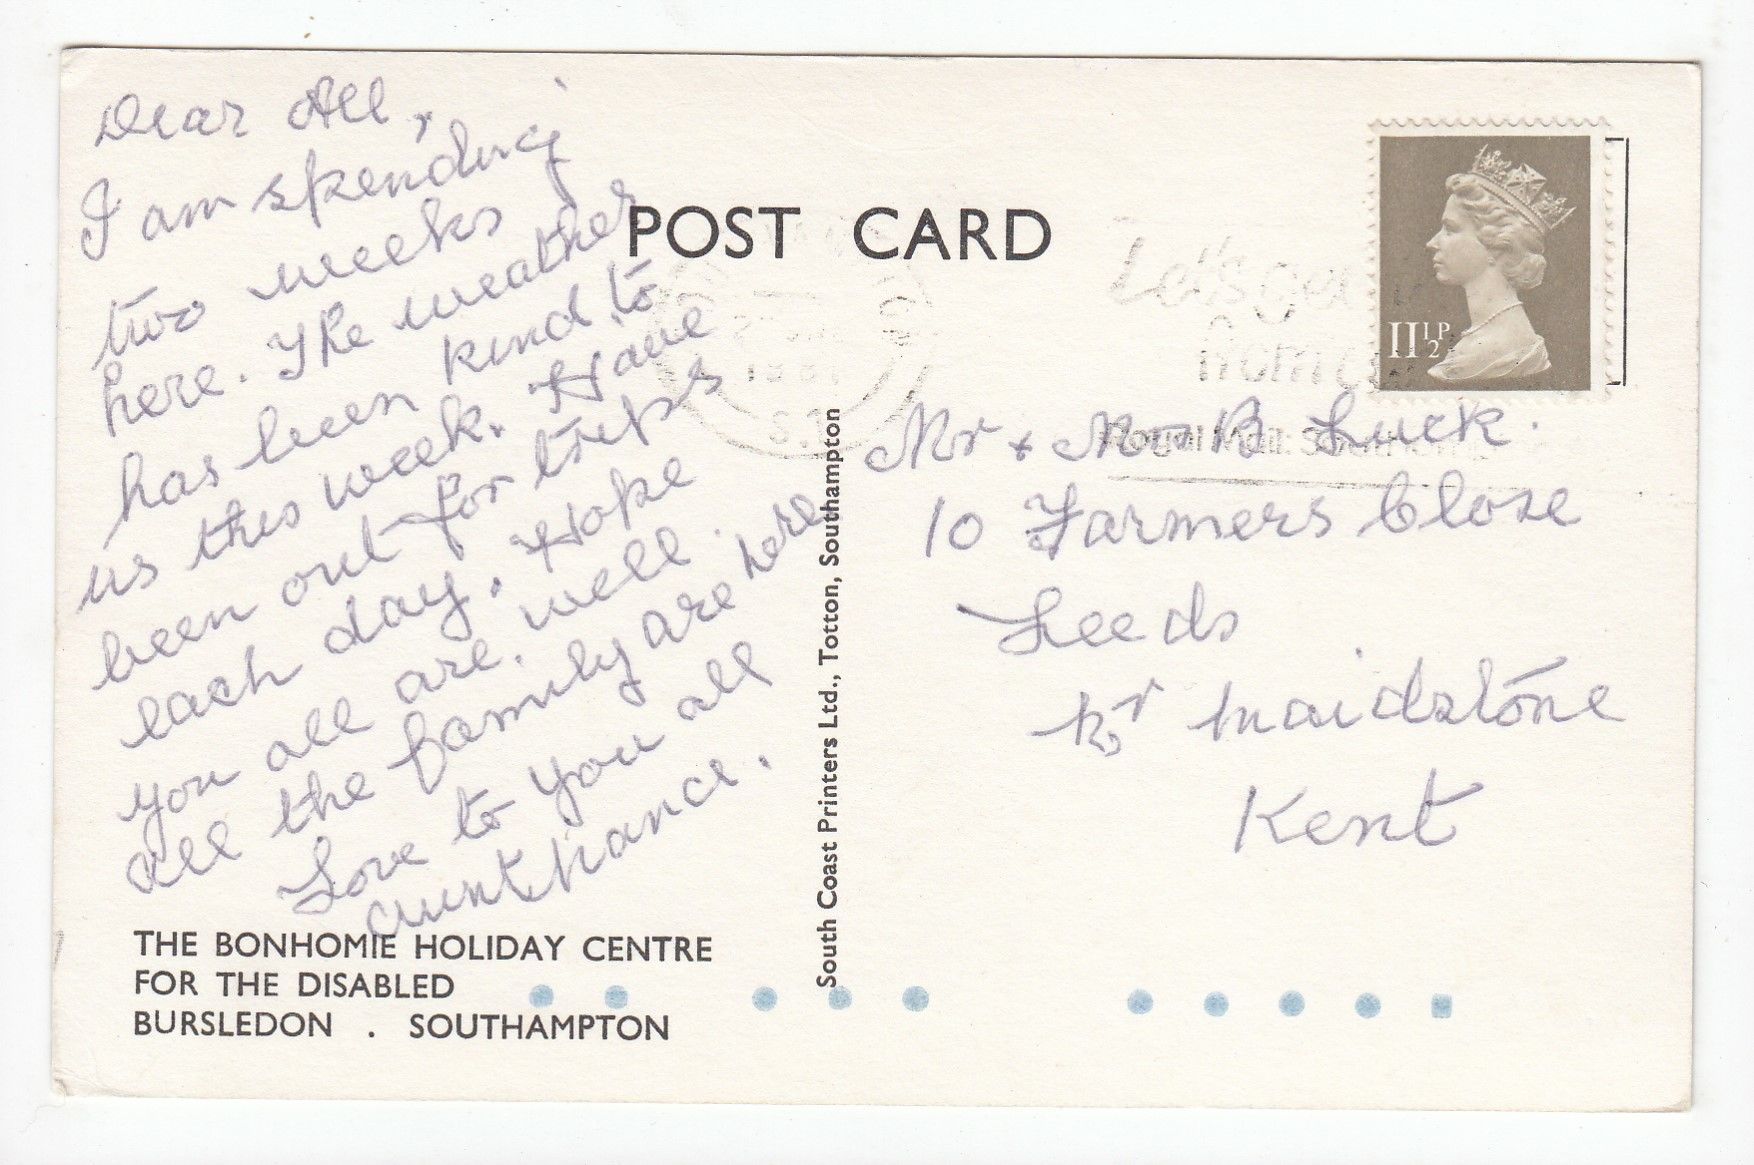 Dear All,
I am spending
two weeks
here. The weather
has been kind to
us this week. Have
been out for trips
each day. Hope
you all are. well.
all the family are here
Love to you all
aunt
THE BONHOMIE HOLIDAY CENTRE
FOR THE DISABLED
BURSLEDON . SOUTHAMPTON
POST CARD
South Coast Printers Ltd., Totton, Southampton
Let's
11½P
Mr + Mrs B Luck.
10 Farmers Close
Leeds
Nr Maidstone
Kent